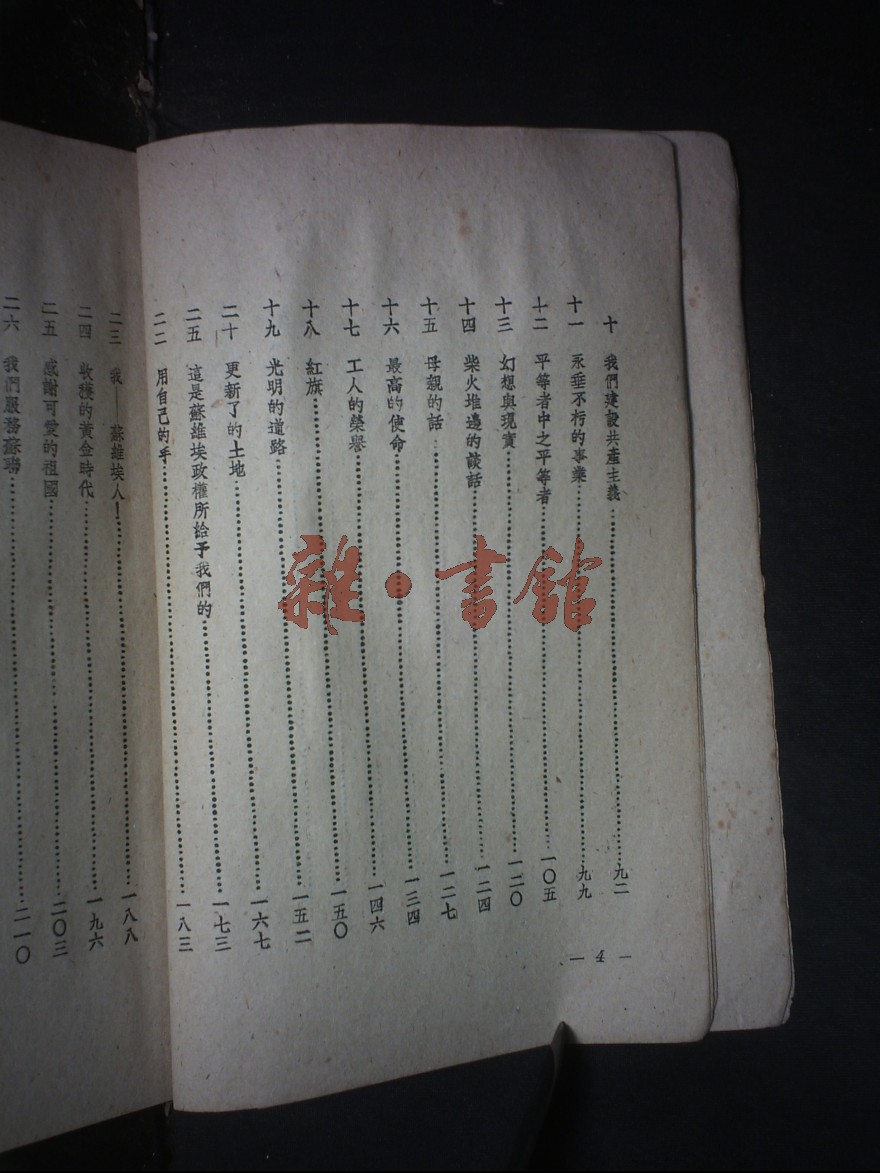 十 我們建設共產主義……九二
十一 永垂不朽的事業……九九
十二 平等者中之平等者……一〇五
十三 幻想與現實……一二〇
十四 柴火堆邊的談話……一二四
十五 母親的話……一二七
十六 最高的使命……一三四
十七 工人的榮譽……一四六
十八 紅旗……一五〇
十九 光明的道路……一五二
二十 更新了的土地……一六七
二五 這是蘇維埃政權所給予我們的……一七三
二二 用自己的手……一八三
— 4 —
二三 我——蘇維埃人!……一八八
二四 收穫的黃金時代……一九六
二五 感謝可愛的祖國……二〇三
二六 我們服務蘇聯……二一〇
雜·書館